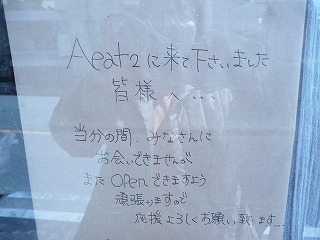 Aeat2に来て下さいました
皆様へ...
当分の間、みなさんに
お会いできませんが
また Openできますよう
頑張りますので
応援よろしくお願い致します...